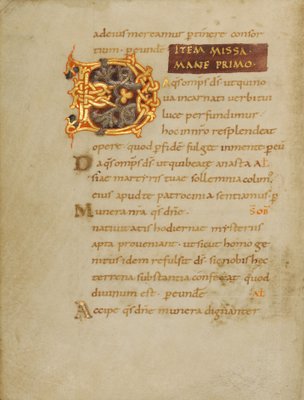 ad eius mereamur ptinere consor
tium. p eundē
ITEM MISSA
MANE PRIMO.
D A q̄s omps d̄s ut qui no
ua incarnati uerbi tui
luce perfundimur
hoc in nro resplendeat
opere quod p fidē fulget in mente. p eū
D a q̄s omps d̄s ut qui beatę anasta AL
siae martyris tuae sollemnia colim'
eius apud te patrocinia sentiamus. p
M unera nr̄a q̄s dn̄e
natiuitatis hodiernę mysteriis
apta proueniant. ut sicut homo ge
nitus idem refulsit d̄s. sic nobis hęc
terrena substantia conferat quod
diuinum est. p eundē
A ccipe q̄s dn̄e munera dignanter